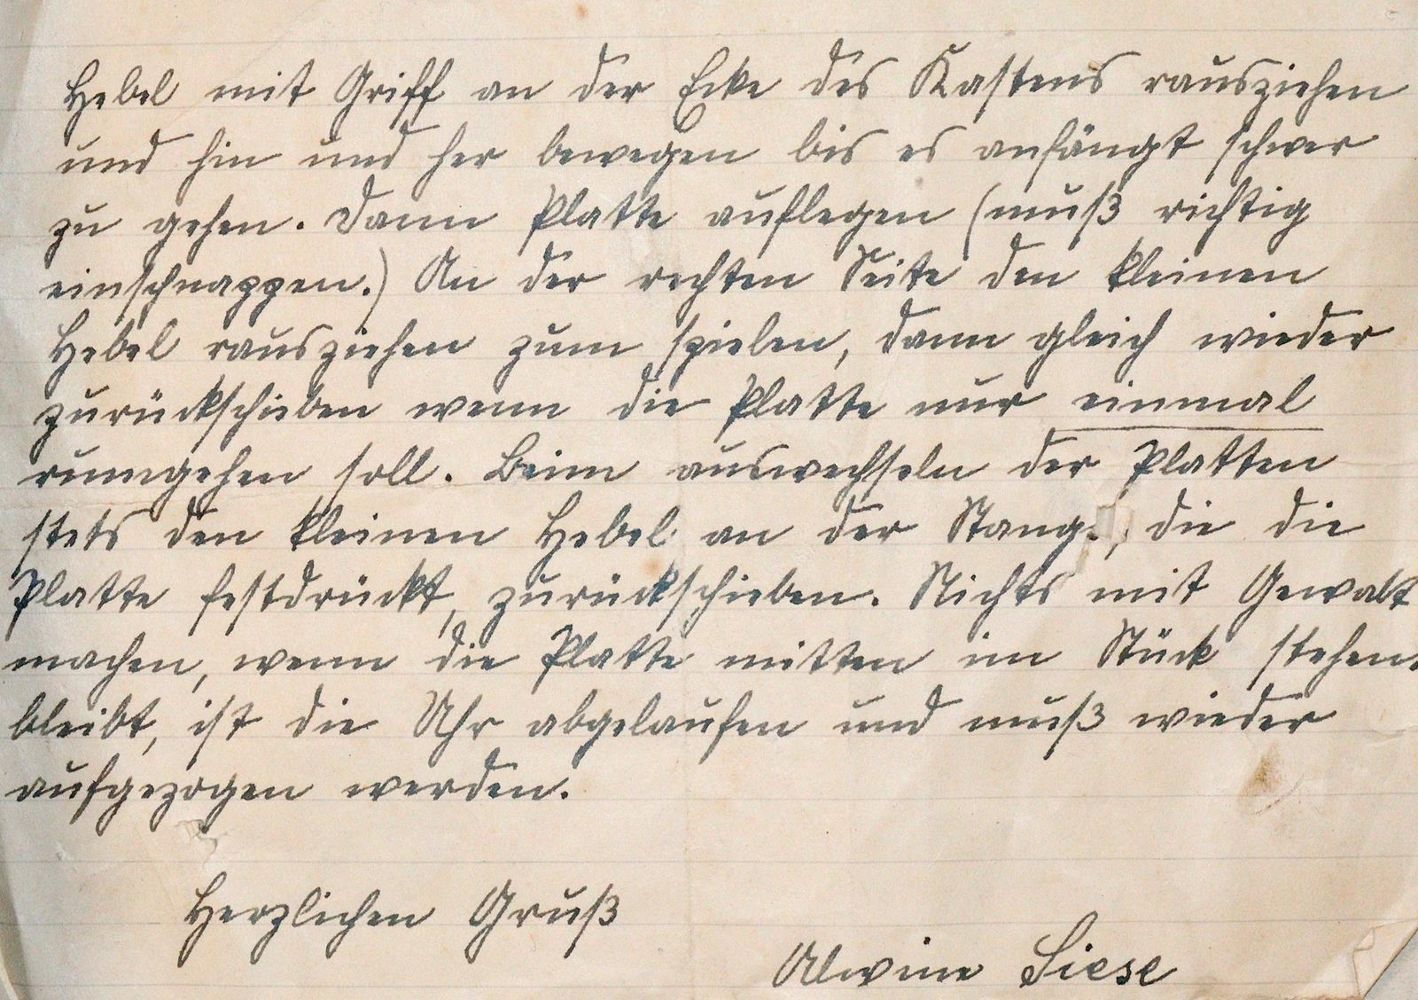 Hebel mit Griff an der Ecke des Kastens rausziehen
und hin und her bewegen bis es anfängt schwer
zu gehen. Dann Platte auflegen (muß richtig
einschnappen.) An der rechten Seite den kleinen
Hebel rausziehen zum spielen, dann gleich wieder
zurückschieben wenn die Platte nur einmal
rumgehen soll. Beim auswechseln der Platten
stets den kleinen Hebel an der Stange, die die
Platte festdrückt, zurückschieben. Nichts mit Gewalt
machen, wenn die Platte mitten im Stück stehen
bleibt, ist die Uhr abgelaufen und muß wieder
aufgezogen werden.
Herzlichen Gruß
Alwine Siese